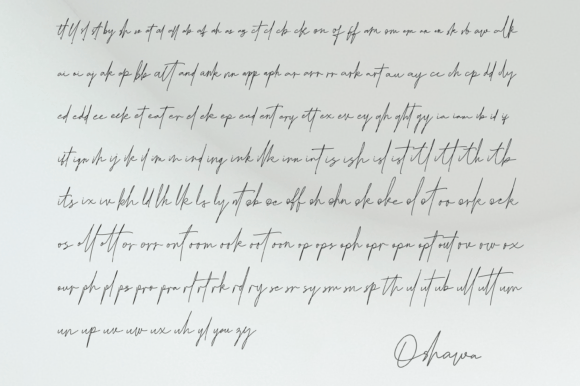 tt ll yl st by sh us at al all ab af ah as ag ct cl cb ck on of ff am om an un en rk rb aw alk
ai oi aj ak ap bb att and ank nn app aph ar arr rr ark art au ay cc ch cp dd dy
ed edd ee eek et eat er el ek ep end ent ery ett ex ev ey gh ght gy ia ian ib id if
ist ign ih ij ik il im in ind ing ink ilk inn int is ish isl ist itl itt ith itb
its ix iv kh ld lh lk ls ly nt ob oc off oh ohn ok oke ol ot oo ork ock
os oll ott or orr ont oom ook oot oon op ops oph opr opn opt out ov ow ox
our ph pl ps pro pra rl rt rk rd ry sc sr sy sm sn sp th ul ut ub ull utt um
un up uv uw ux wh yl you zy
Oshawa